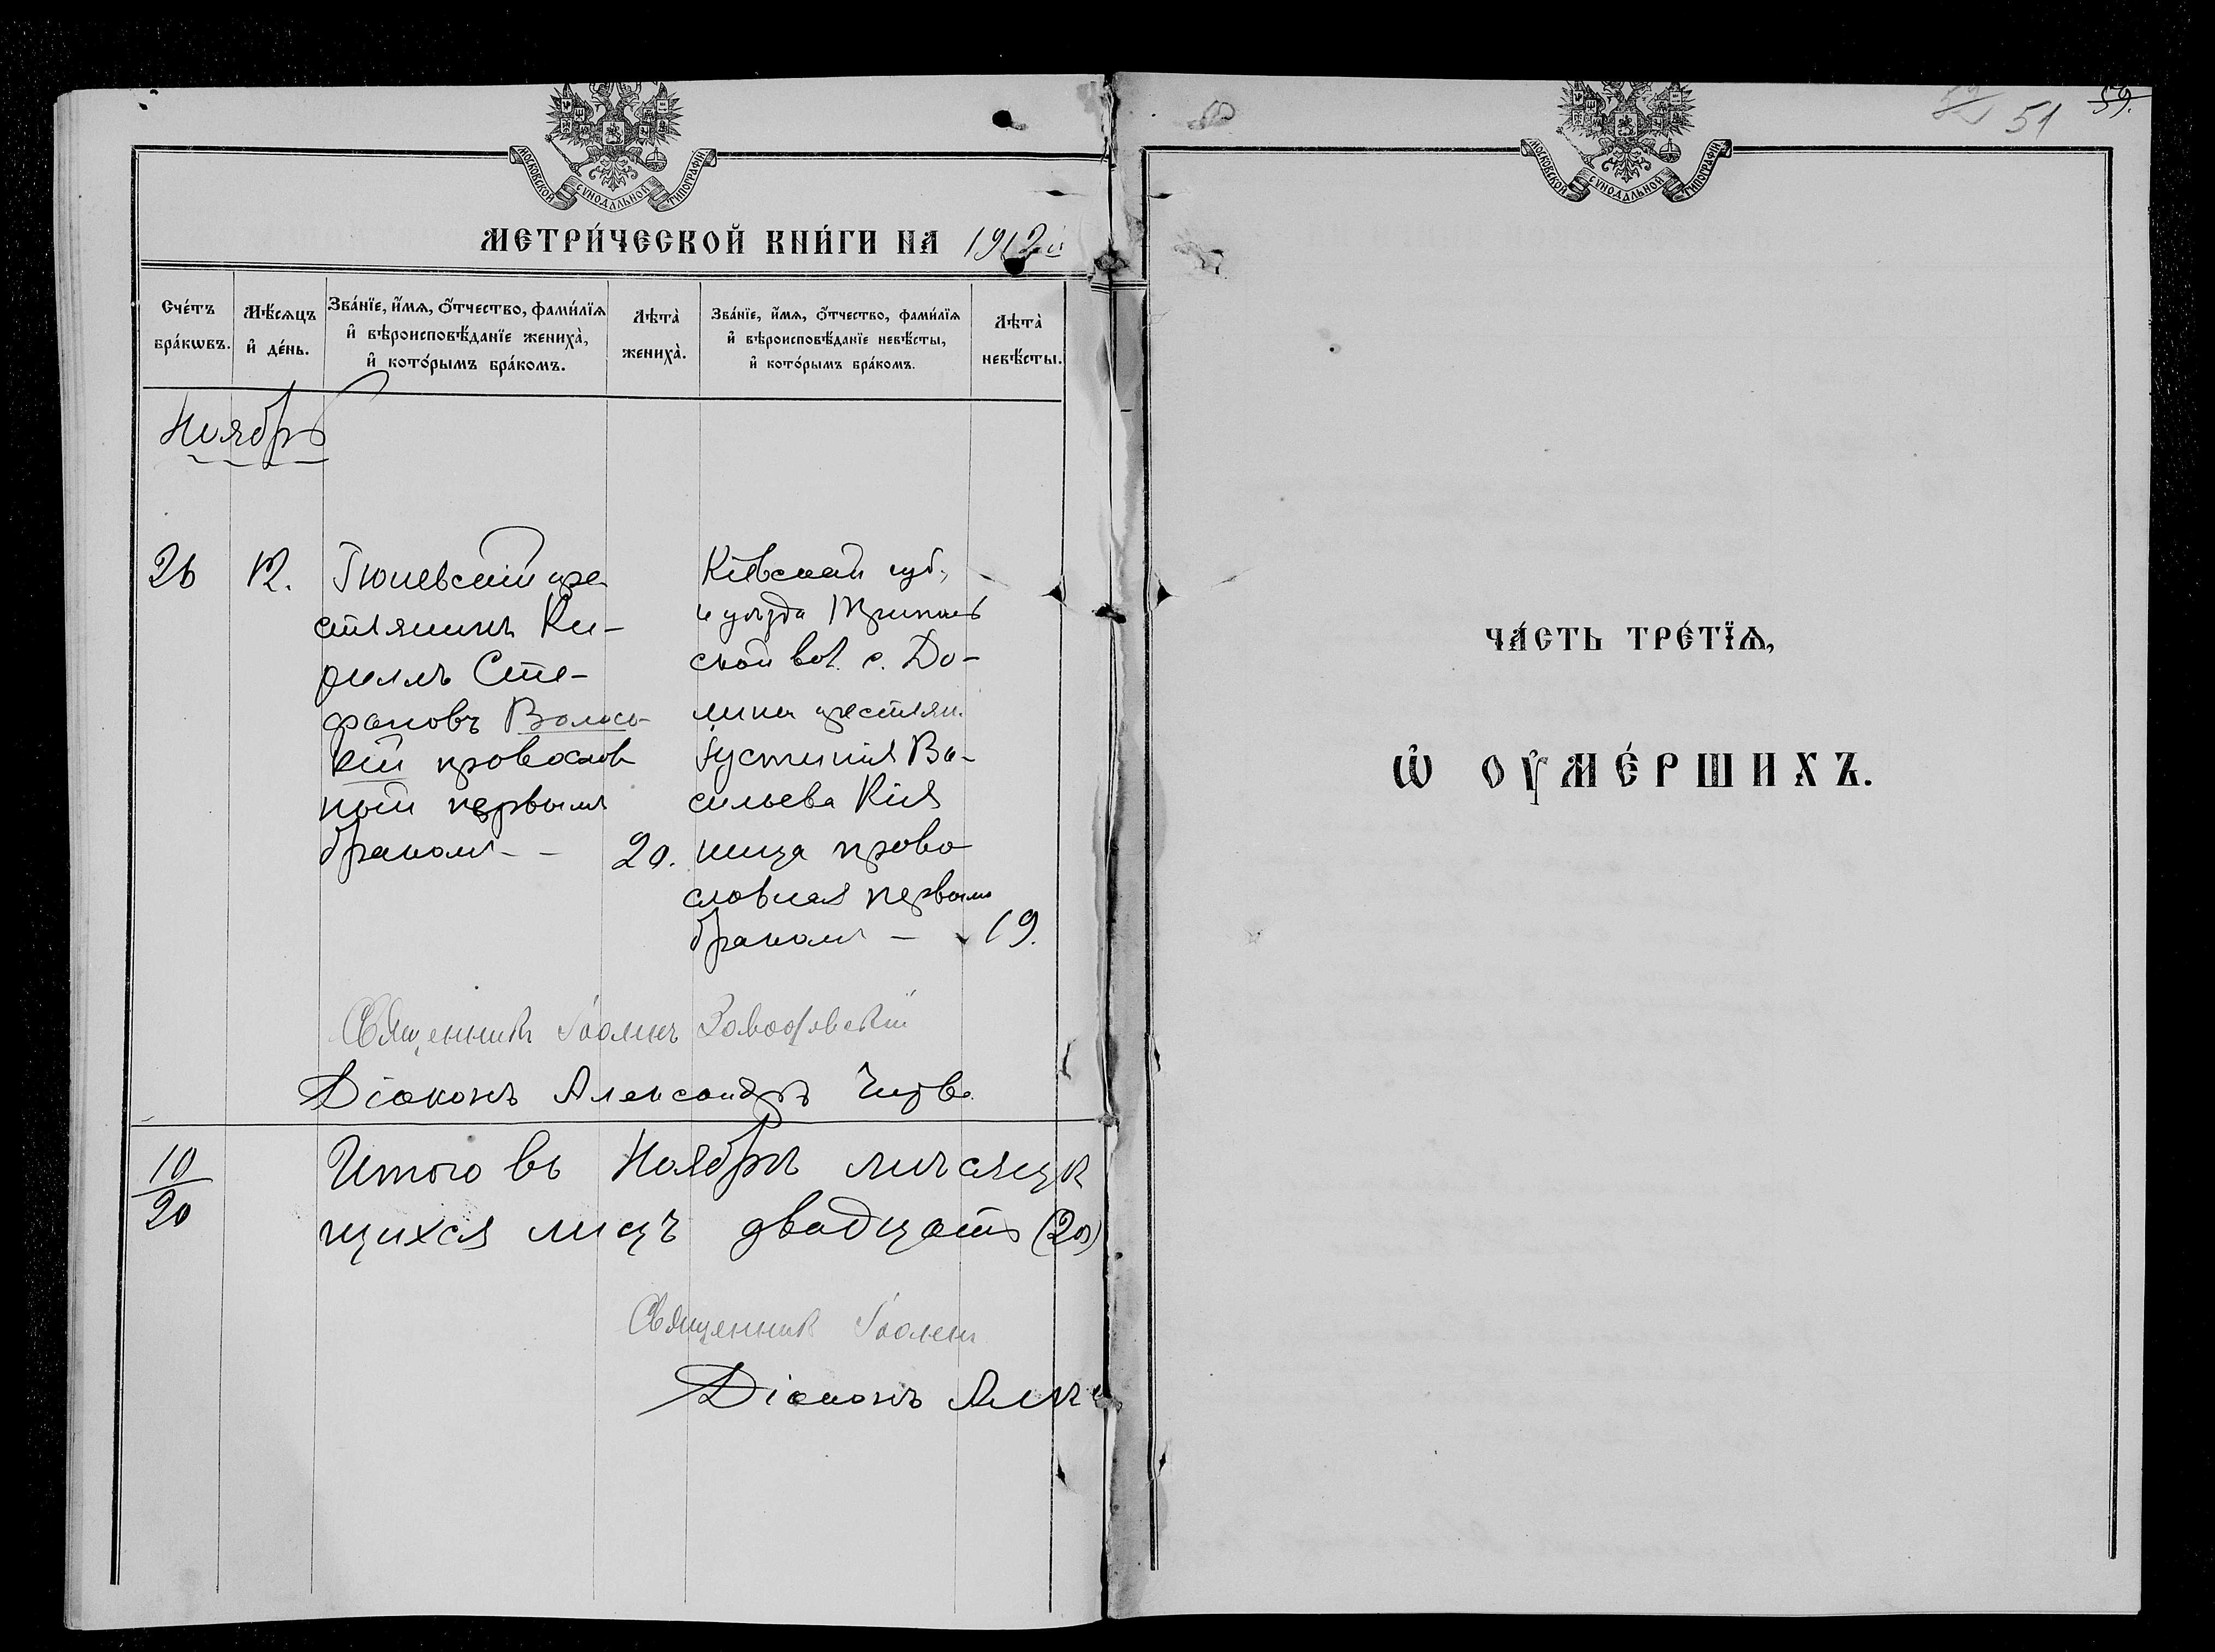 59.
51
МОСКОВСКОЙ СѴНОДАЛЬНОЙ ТИПОГРАФІИ
МЕТРИ́ЧЕСКОЙ КНИ́ГИ НА 1912й
Сче́тъ бра́кωвъ.
Мѣ́сѧцъ и҆ де́нь.
Зва́нїе, и҆́мѧ, ѻ҆́тчество, фами́лїѧ и҆ вѣроисповѣ́данїе жениха̀, и҆ кото́рымъ бра́комъ.
Лѣта̀ жениха̀.
Зва́нїе, и҆́мѧ, ѻ҆́тчество, фами́лїѧ и҆ вѣроисповѣ́данїе невѣ́сты, и҆ кото́рымъ бра́комъ.
Лѣта̀ невѣ́сты.
Ноябрь
26
12.
кре
стьянинъ Ки-
риллъ Сте-
фановъ Волось
кій православ
ный первымъ
бракомъ - -
20.
Кіевской губ.,
и уѣзда Триполь
ской вол. с. До-
лины крестьян.
Іустинія Ва-
сильева Кія
ница право
славная первымъ
бракомъ -
19.
Священникъ Іоаннъ
Діаконъ Александръ
10
20
Итого въ Ноябрѣ мѣсяцѣ
щихся лицъ двадцать (20)
Священникъ Іоаннъ
Діаконъ Алек
МОСКОВСКОЙ СѴНОДАЛЬНОЙ ТИПОГРАФІИ
ЧА́СТЬ ТРЕ́ТЇѦ,
Ѽ ОУ҆МЕ́РШИХЪ.